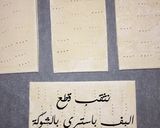 نثقب قطع
البف باستري بالشوكة